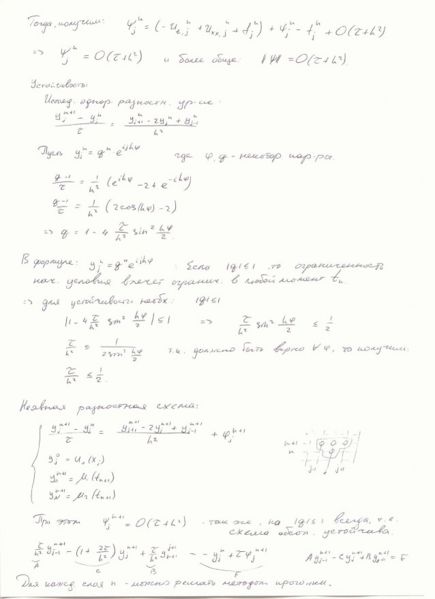 Тогда, получим: ψ_j^n = (-u_{t,j}^n + u_{xx,j}^n + f_j^n) + φ_j^n - f_j^n + O(τ+h²)
⇒ ψ_j^n = O(τ+h²) и более общее: ‖ψ‖ = O(τ+h²)
Устойчивость:
Исслед. однор. разностн. ур-ие:
(y_j^{n+1} - y_j^n)/τ = (y_{j+1}^n - 2y_j^n + y_{j-1}^n)/h²
Пусть y_j^n = q^n e^{ijhφ} где φ, q - некотор. пар-ра.
(q-1)/τ = 1/h² (e^{ihφ} - 2 + e^{-ihφ})
(q-1)/τ = 1/h² (2cos(hφ) - 2)
⇒ q = 1 - 4 τ/h² sin² hφ/2
В формуле: y_j^n = q^n e^{ijhφ}: Если |q| ≤ 1, то ограниченность
нач. условия влечет огранич. в любой момент t_n.
⇒ для устойчивости необх: |q| ≤ 1
|1 - 4 τ/h² sin² hφ/2| ≤ 1 ⇒ τ/h² sin² hφ/2 ≤ 1/2
τ/h² ≤ 1/(2 sin² hφ/2) т.к. должно быть верно ∀φ, то получим:
τ/h² ≤ 1/2.
Неявная разностная схема:
(y_j^{n+1} - y_j^n)/τ = (y_{j+1}^{n+1} - 2y_j^{n+1} + y_{j-1}^{n+1})/h² + φ_j^{n+1}
n+1
n
y_j^0 = u_0(x_j)
y_0^{n+1} = μ_1(t_{n+1})
y_N^{n+1} = μ_2(t_{n+1})
При этом ψ_j^{n+1} = O(τ+h²) - так же, но |q| ≤ 1 всегда, т.е.
схема абсол. устойчива.
τ/h² y_{j-1}^{n+1} - (1 + 2τ/h²) y_j^{n+1} + τ/h² y_{j+1}^{n+1} = -y_j^n + τφ_j^{n+1}
A C B F
Для кажд. слоя n - можно решать методом прогонки.